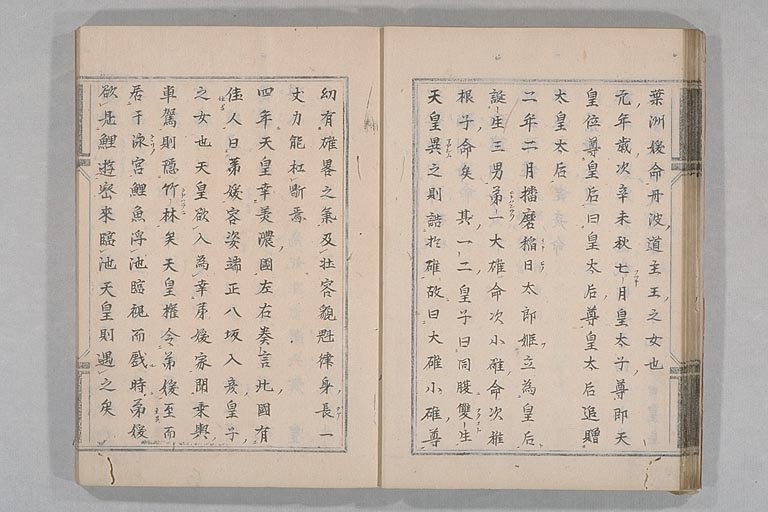 葉洲媛命丹波道主王之女也
元年歳次辛未秋七月皇太子尊即天
皇位尊皇后曰皇太后尊皇太后追贈
太皇太后
二年二月播磨稲日太郎姫立為皇后
誕生三男第一大碓命次小碓命次稚
根子命矣其一二皇子曰同腹雙生
天皇異之則誥於碓故曰大碓小碓尊
幼有雄畧之氣及壮容貌魁律身長一
丈力能杠斷焉
四年天皇幸美濃國左右奏言此國有
佳人曰弟媛容姿端正八坂入彦皇子
之女也天皇欲入為幸弟媛家聞乗輿
車駕則隠竹林矣天皇権令弟媛至而
居于泳宮鯉魚浮池臨視而戯時弟媛
欲見鯉遊密来臨池天皇則遇之矣